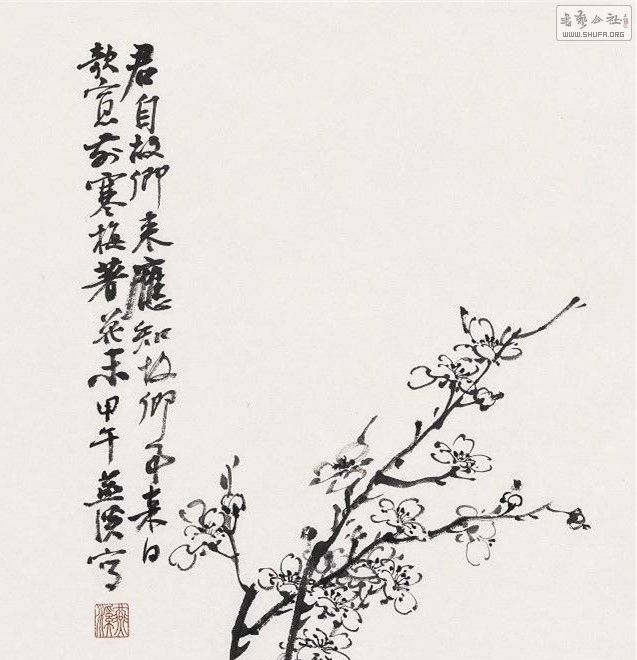 君自故鄉来應知故鄉事来日
綺窗前寒梅著花未甲午燕溪写
燕溪
WWW.SHUFA.ORG